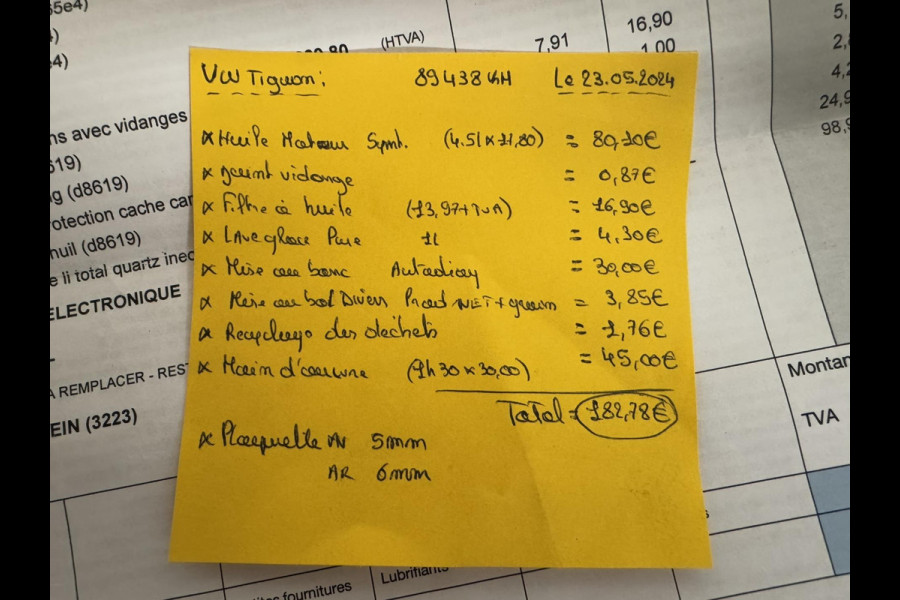 65e4)
16,90
5,
(HTVA)
7,91
1,00
e4)
VW Tiguan :    89438 KM    Le 23.05.2024
x Huile Moteur Synt. (4.5l x 17,80) = 80,10€
x Joint vidange = 0,87€
x Filtre à huile (13,97+TVA) = 16,90€
x Lave glace Pure 1L = 4,30€
x Mise au banc Autodiag = 30,00€
x Mise au bol Divers Prod NET + = 3,85€
x Recyclage des déchets = 1,76€
x Main d'oeuvre (1h30 x 30,00) = 45,00€
Total = 182,78€
x Plaquette AV 5mm
AR 6mm
ns avec vidanges
619)
g (d8619)
otection cache car
nuil (d8619)
e li total quartz ineo
ELECTRONIQUE
A REMPLACER - REST
EIN (3223)
24,9
98,9
Montan
TVA
ites fournitures
Lubrifiants